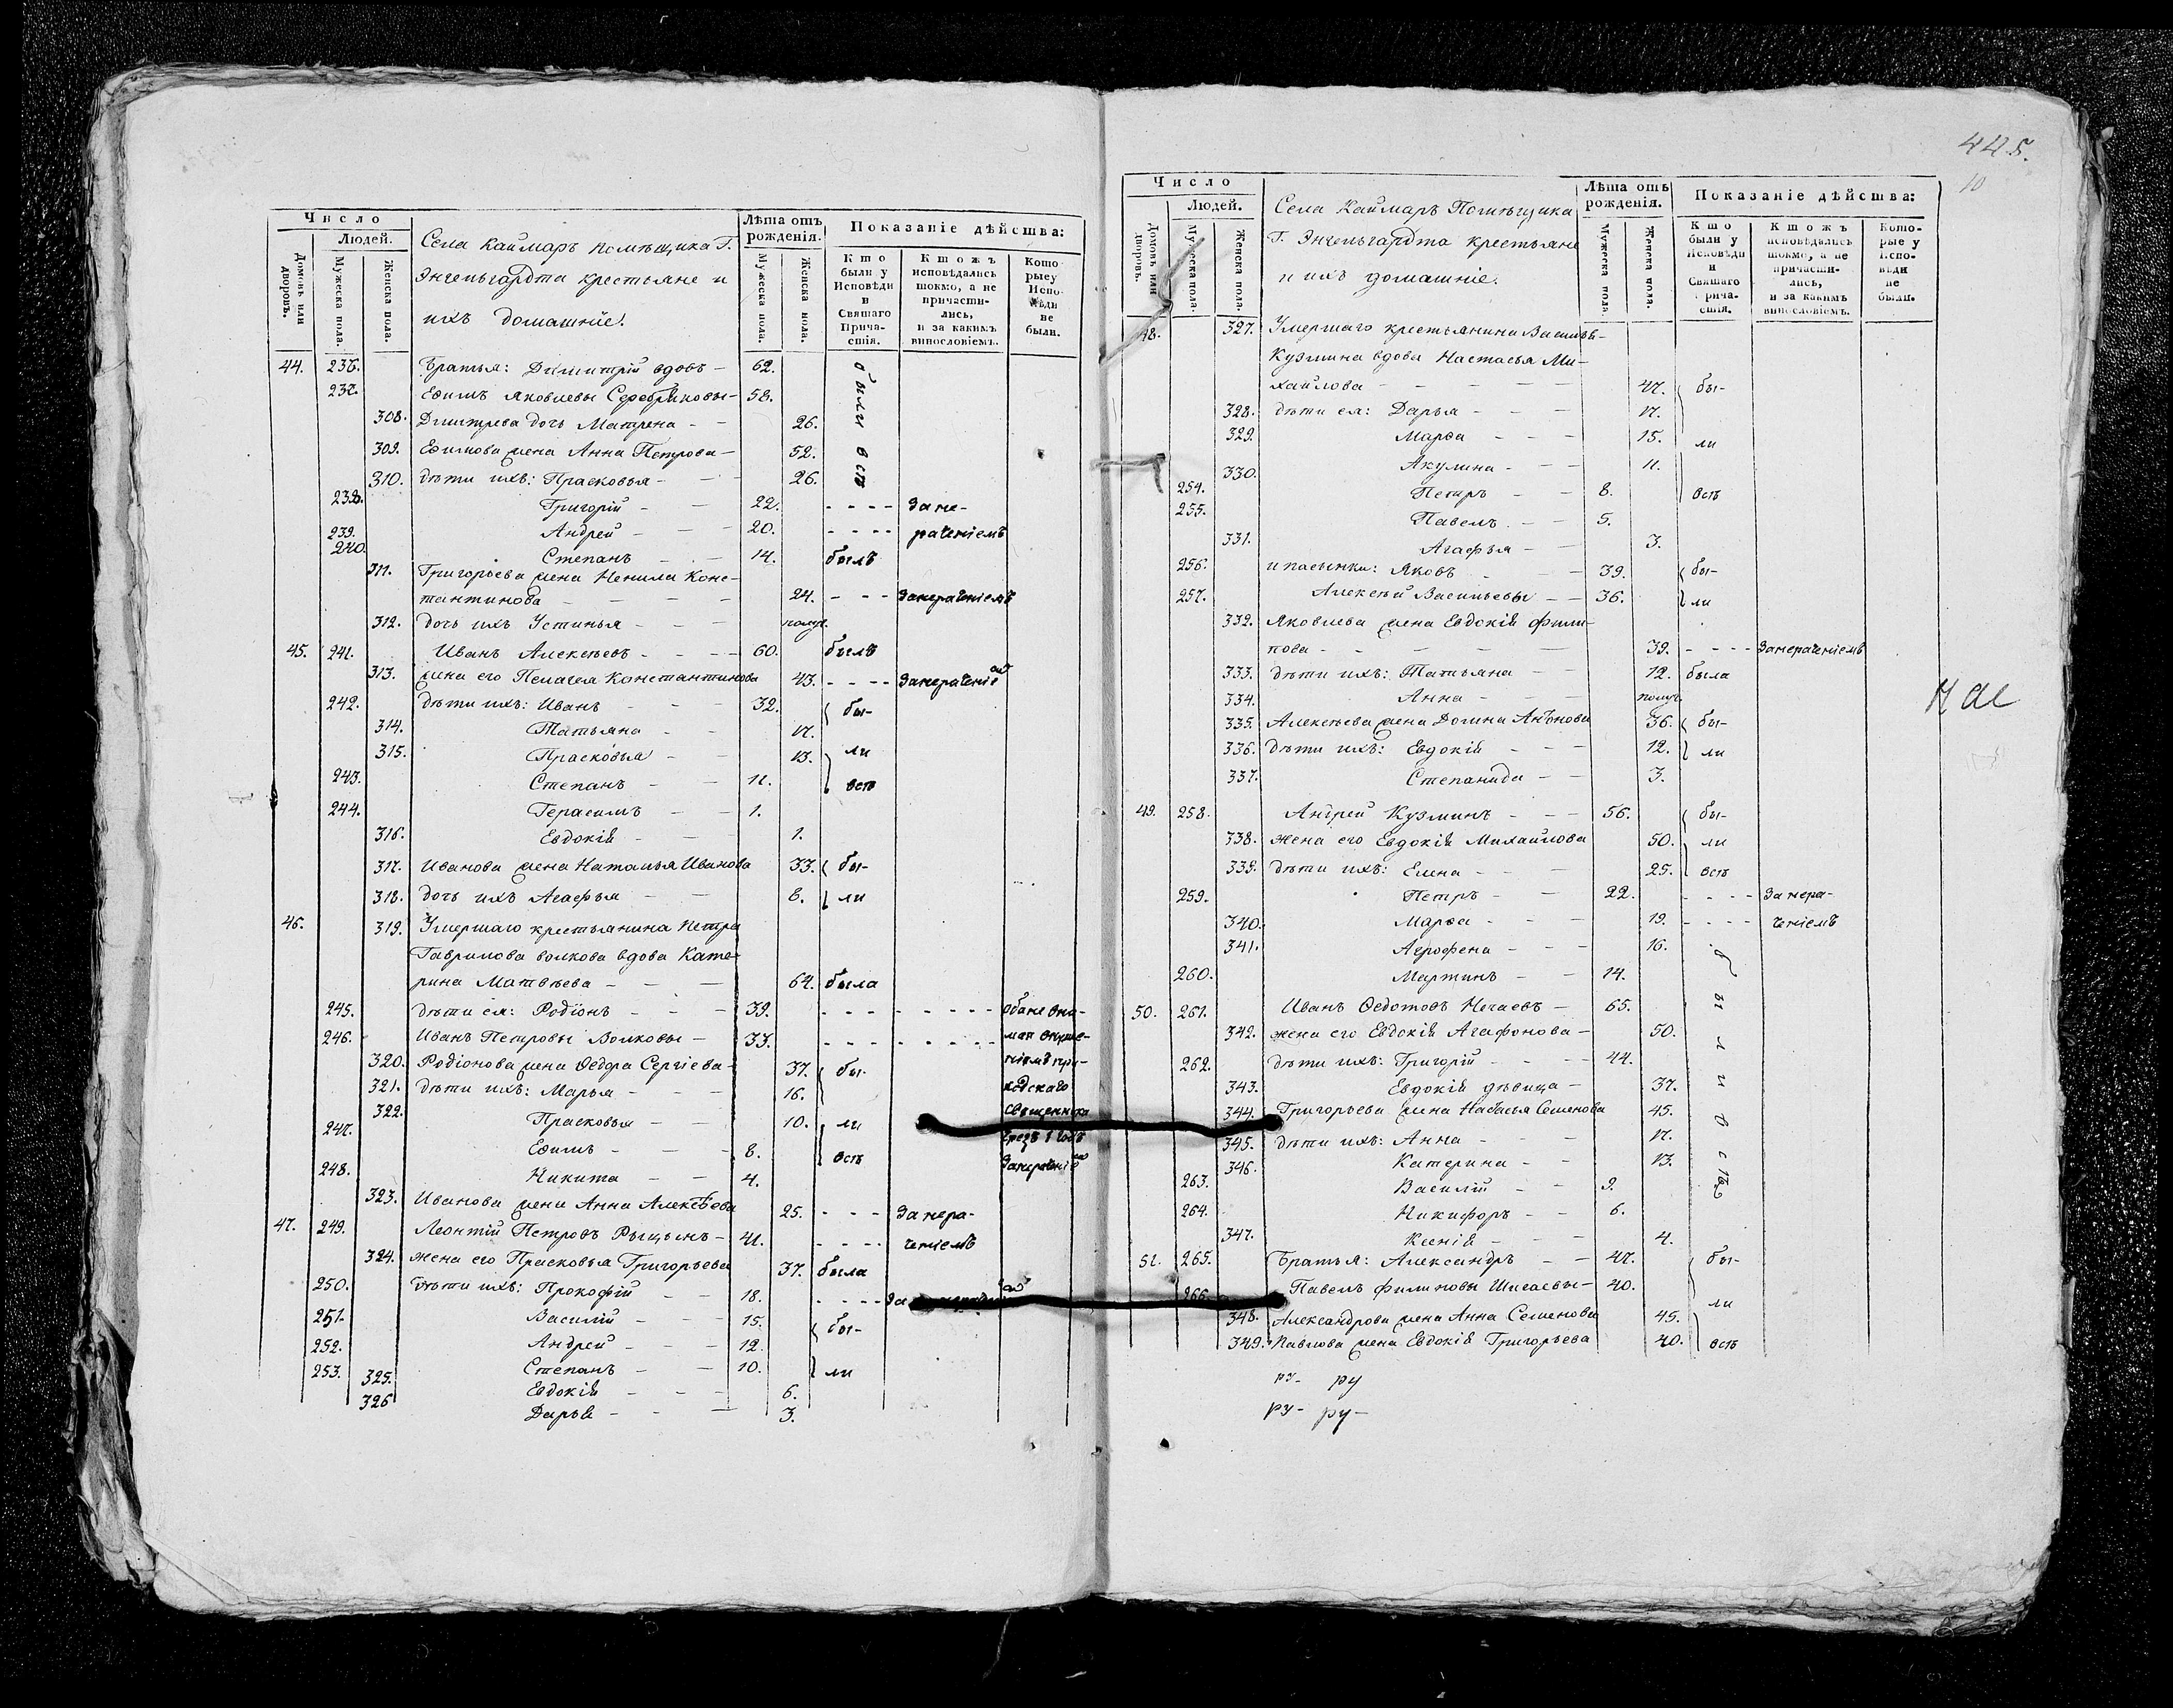 Число
Людей.
Домовъ или дворовъ.
Мужеска пола.
Женска пола.
Села Каймаръ помѣщика Г.
Энгельгардта крестьяне и
ихъ домашніе.
Лѣта отъ рожденія.
Мужеска пола.
Женска пола.
Показаніе дѣйства:
Кто были у Исповѣди и Святаго Причастія.
Кто жъ исповѣдались токмо, а не причастились, и за какимъ винословіемъ.
Которые у Исповѣди не были.
44. 236. Братья: Димитрій вдовъ — 62. были всѣ
237. Ефимъ Яковлевы Серебряковы — 58.
308. Дмитрева дочь Матрена — 26.
309. Ефимова жена Анна Петрова — 52.
310. дѣти ихъ: Прасковья — 26.
238. Григорій — 22. - - - - За не-
239. Андрей — 20. - - - - раченіемъ
240. Степанъ — 14. былъ
311. Григорьева жена Ненила Конс-
тантинова — 24. - - - Занераченіемъ
312. дочь ихъ Устинья — полуг.
45. 241. Иванъ Алексѣевъ — 60. былъ
313. жена его Пелагея Константинова 43. - - - - Занераченіемъ
242. дѣти ихъ: Иванъ — 32. бы-
314. Татьяна — 17.
315. Прасковья — 13. ли
243. Степанъ — 11. всѣ
244. Герасимъ — 1.
316. Евдокія — 1.
317. Иванова жена Наталья Иванова 33. бы-
318. дочь ихъ Агафья — 8. ли
46. 319. Умершаго крестьянина Петра
Гаврилова Волкова вдова Кате-
рина Матвѣева — 64. была
245. дѣти ея: Родіонъ — 39. - - - - - - - - -
246. Иванъ Петровы Волковы — 33. - - - - - - - - -
320. Родіонова жена Ѳедора Сергіева — 37. бы-
321. дѣти ихъ: Марья — 16.
322. Прасковья — 10. ли Священника
247. Ефимъ — 8. всѣ
248. Никита — 4.
323. Иванова жена Анна Алексѣева 25. - - - За нера-
47. 249. Леонтій Петровъ Рыцынъ — 41. - - - - ченіемъ
324. жена его Прасковья Григорьева 37. была
250. дѣти ихъ: Прокофій — 18. - - - - За
251. Василій — 15. бы-
252. Андрей — 12.
253. Степанъ — 10. ли
325. Евдокія — 6.
326 Дарья — 3.
445.
10
Число
Людей.
Домовъ или дворовъ.
Мужеска пола.
Женска пола.
Села Каймаръ Помѣщика
Г. Энгельгардта крестьяне
и ихъ домашніе.
Лѣта отъ рожденія.
Мужеска пола.
Женска пола.
Показаніе дѣйства:
Кто были у Исповѣди и Святаго Причастія.
Кто жъ исповѣдались токмо, а не причастились, и за какимъ винословіемъ.
Которые у Исповѣди не были.
48. 327. Умершаго крестьянина Василья-
Кузмина вдова Настасья Ми-
хайлова — 47. бы-
328. дѣти ея: Дарья — 17.
329. Марѳа — 15. ли
330. Акулина — 11.
254. Петръ — 8. всѣ
255. Павелъ — 5.
331. Агафья — 3.
256. и пасынки: Яковъ — 39. бы-
257. Алексѣй Васильевы — 36. ли
332. Яковлева жена Евдокія Фили-
пова — 39. - - - - Занераченіемъ
333. дѣти ихъ: Татьяна — 12. была
334. Анна — полуг.
335. Алексѣева жена Домна Антонова 36. бы-
336. дѣти ихъ: Евдокія — 12. ли
337. Степанида — 3.
49. 258. Андрей Кузминъ — 56. бы-
338. жена его Евдокія Михайлова 50. ли
339. дѣти ихъ: Елена — 25. всѣ
259. Петръ — 22. - - - - За нера-
340. Марѳа — 19. - - - - ченіемъ
341. Агрофена — 16. были всѣ
260. Мартинъ — 14.
50. 261. Иванъ Ѳедотовъ Нечаевъ — 65.
342. жена его Евдокія Агафонова — 50.
262. дѣти ихъ: Григорій — 44.
343. Евдокія дѣвица — 37.
344. Григорьева жена Настасья Семенова 45.
345. дѣти ихъ: Анна — 17.
346. Катерина — 13.
263. Василій — 9.
264. Никифоръ — 6.
347. Ксенія — 4.
51. 265. Братья: Александръ — 47. бы-
266. Павелъ Филиповы Шигаевы — 40.
348. Александрова жена Анна Семенова 45. ли
349. Павлова жена Евдокія Григорьева 40. всѣ
ру- ру
ру- ру-